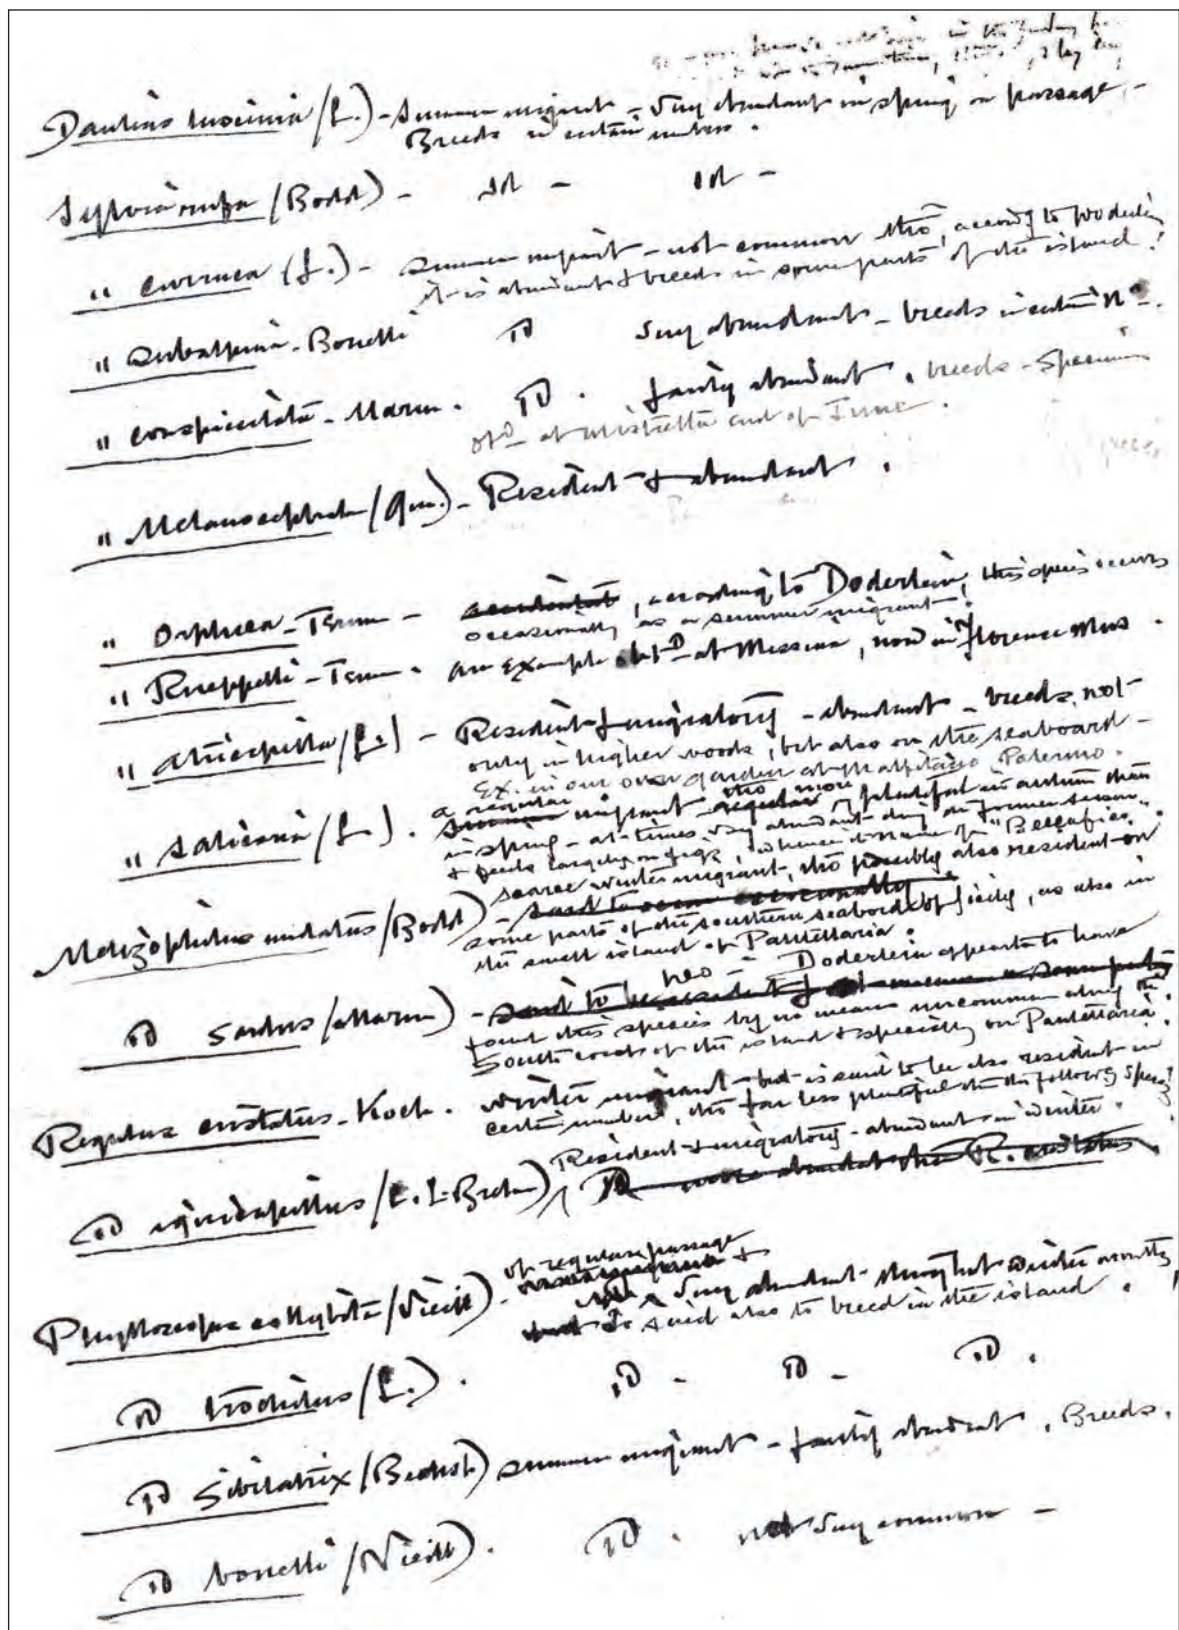 in the
Daulias luscinia (L.) - Summer migrant - Very abundant in spring on passage -
Breeds in certain numbers.
Sylvia rufa (Bodd) - Id - Id -
" curruca (L.) - Summer migrant - not common tho', according to Doderlein
it is abundant & breeds in some parts of the island!
" Subalpina - Bonelli ID Very abundant - breeds in certain Nos.
" conspicillata - Marm. ID. fairly abundant, breeds - Specimen
obtd at Mistretta end of June.
" Melanocephala (Gm.) - Resident & abundant.
" Orphea - Temm - accidental, according to Doderlein, this species occurs
occasionally as a summer migrant!
" Rueppelli - Temm. an Example obtd at Messina, now in Florence Mus.
" atricapilla (L.) - Resident & migratory - abundant - breeds, not
only in higher woods, but also on the seaboard -
Ex. in our own garden at Malfitano Palermo.
a regular tho' more
" salicaria (L.). Summer migrant - regular & plentiful in autumn than
in spring - at times very abundant during former season
& feeds largely on figs, whence its name of "Beccafico"
scarce winter migrant, tho' possibly also resident on
Melizophilus undatus (Bodd) - said to occur occasionally
some parts of the southern seabord of Sicily, as also in
the small island of Pantellaria.
Doderlein appears to have
ID Sardus (Marm) - said to be resident
found this species by no means uncommon along the
South coasts of the island & specially on Pantellaria.
Regulus cristatus - Koch. winter migrant - but is said to be also resident in
certain number, tho' far less plentiful than the following species
Resident & migratory - abundant in winter.
ID ignicapillus (C. L. Brehm) ID more abundant than R. cristatus
of regular passage
Phylloscopus collybita (Vieill). &
Very abundant throughout winter months
Is said also to breed in the island.
ID trochilus (L.). ID - ID - ID.
ID Sibilatrix (Bechst.) summer migrant - fairly abundant. Breeds.
ID bonelli (Vieill). ID. not very common -